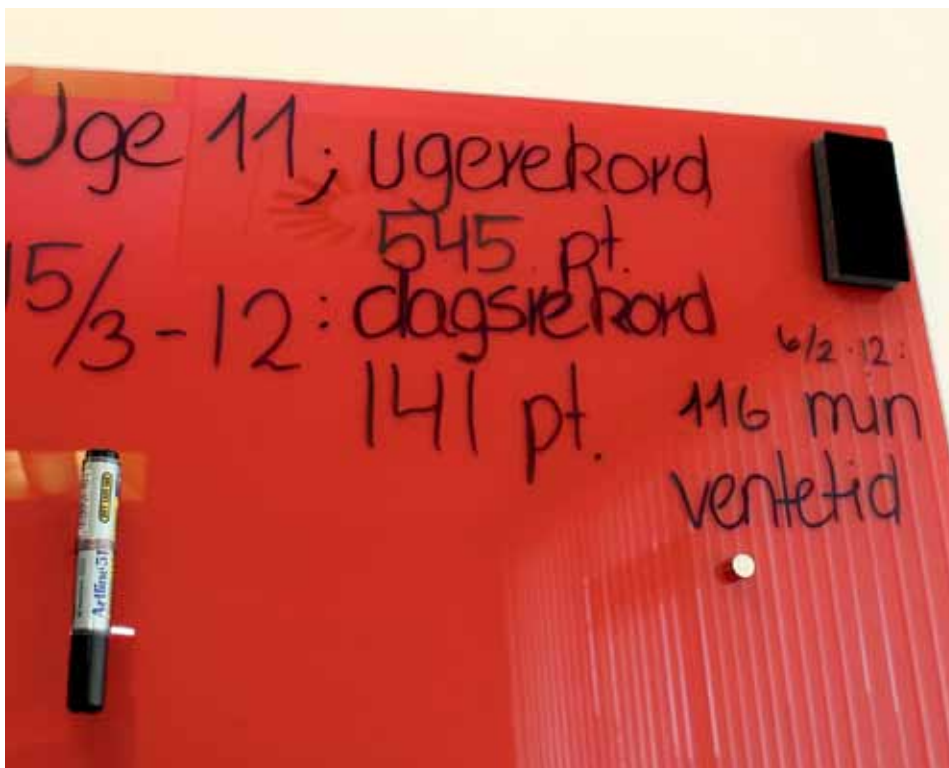 Uge 11; ugerekord
545 pt.
15/3-12: dagsrekord
141 pt.
6/2-12:
116 min
ventetid
Artline 51